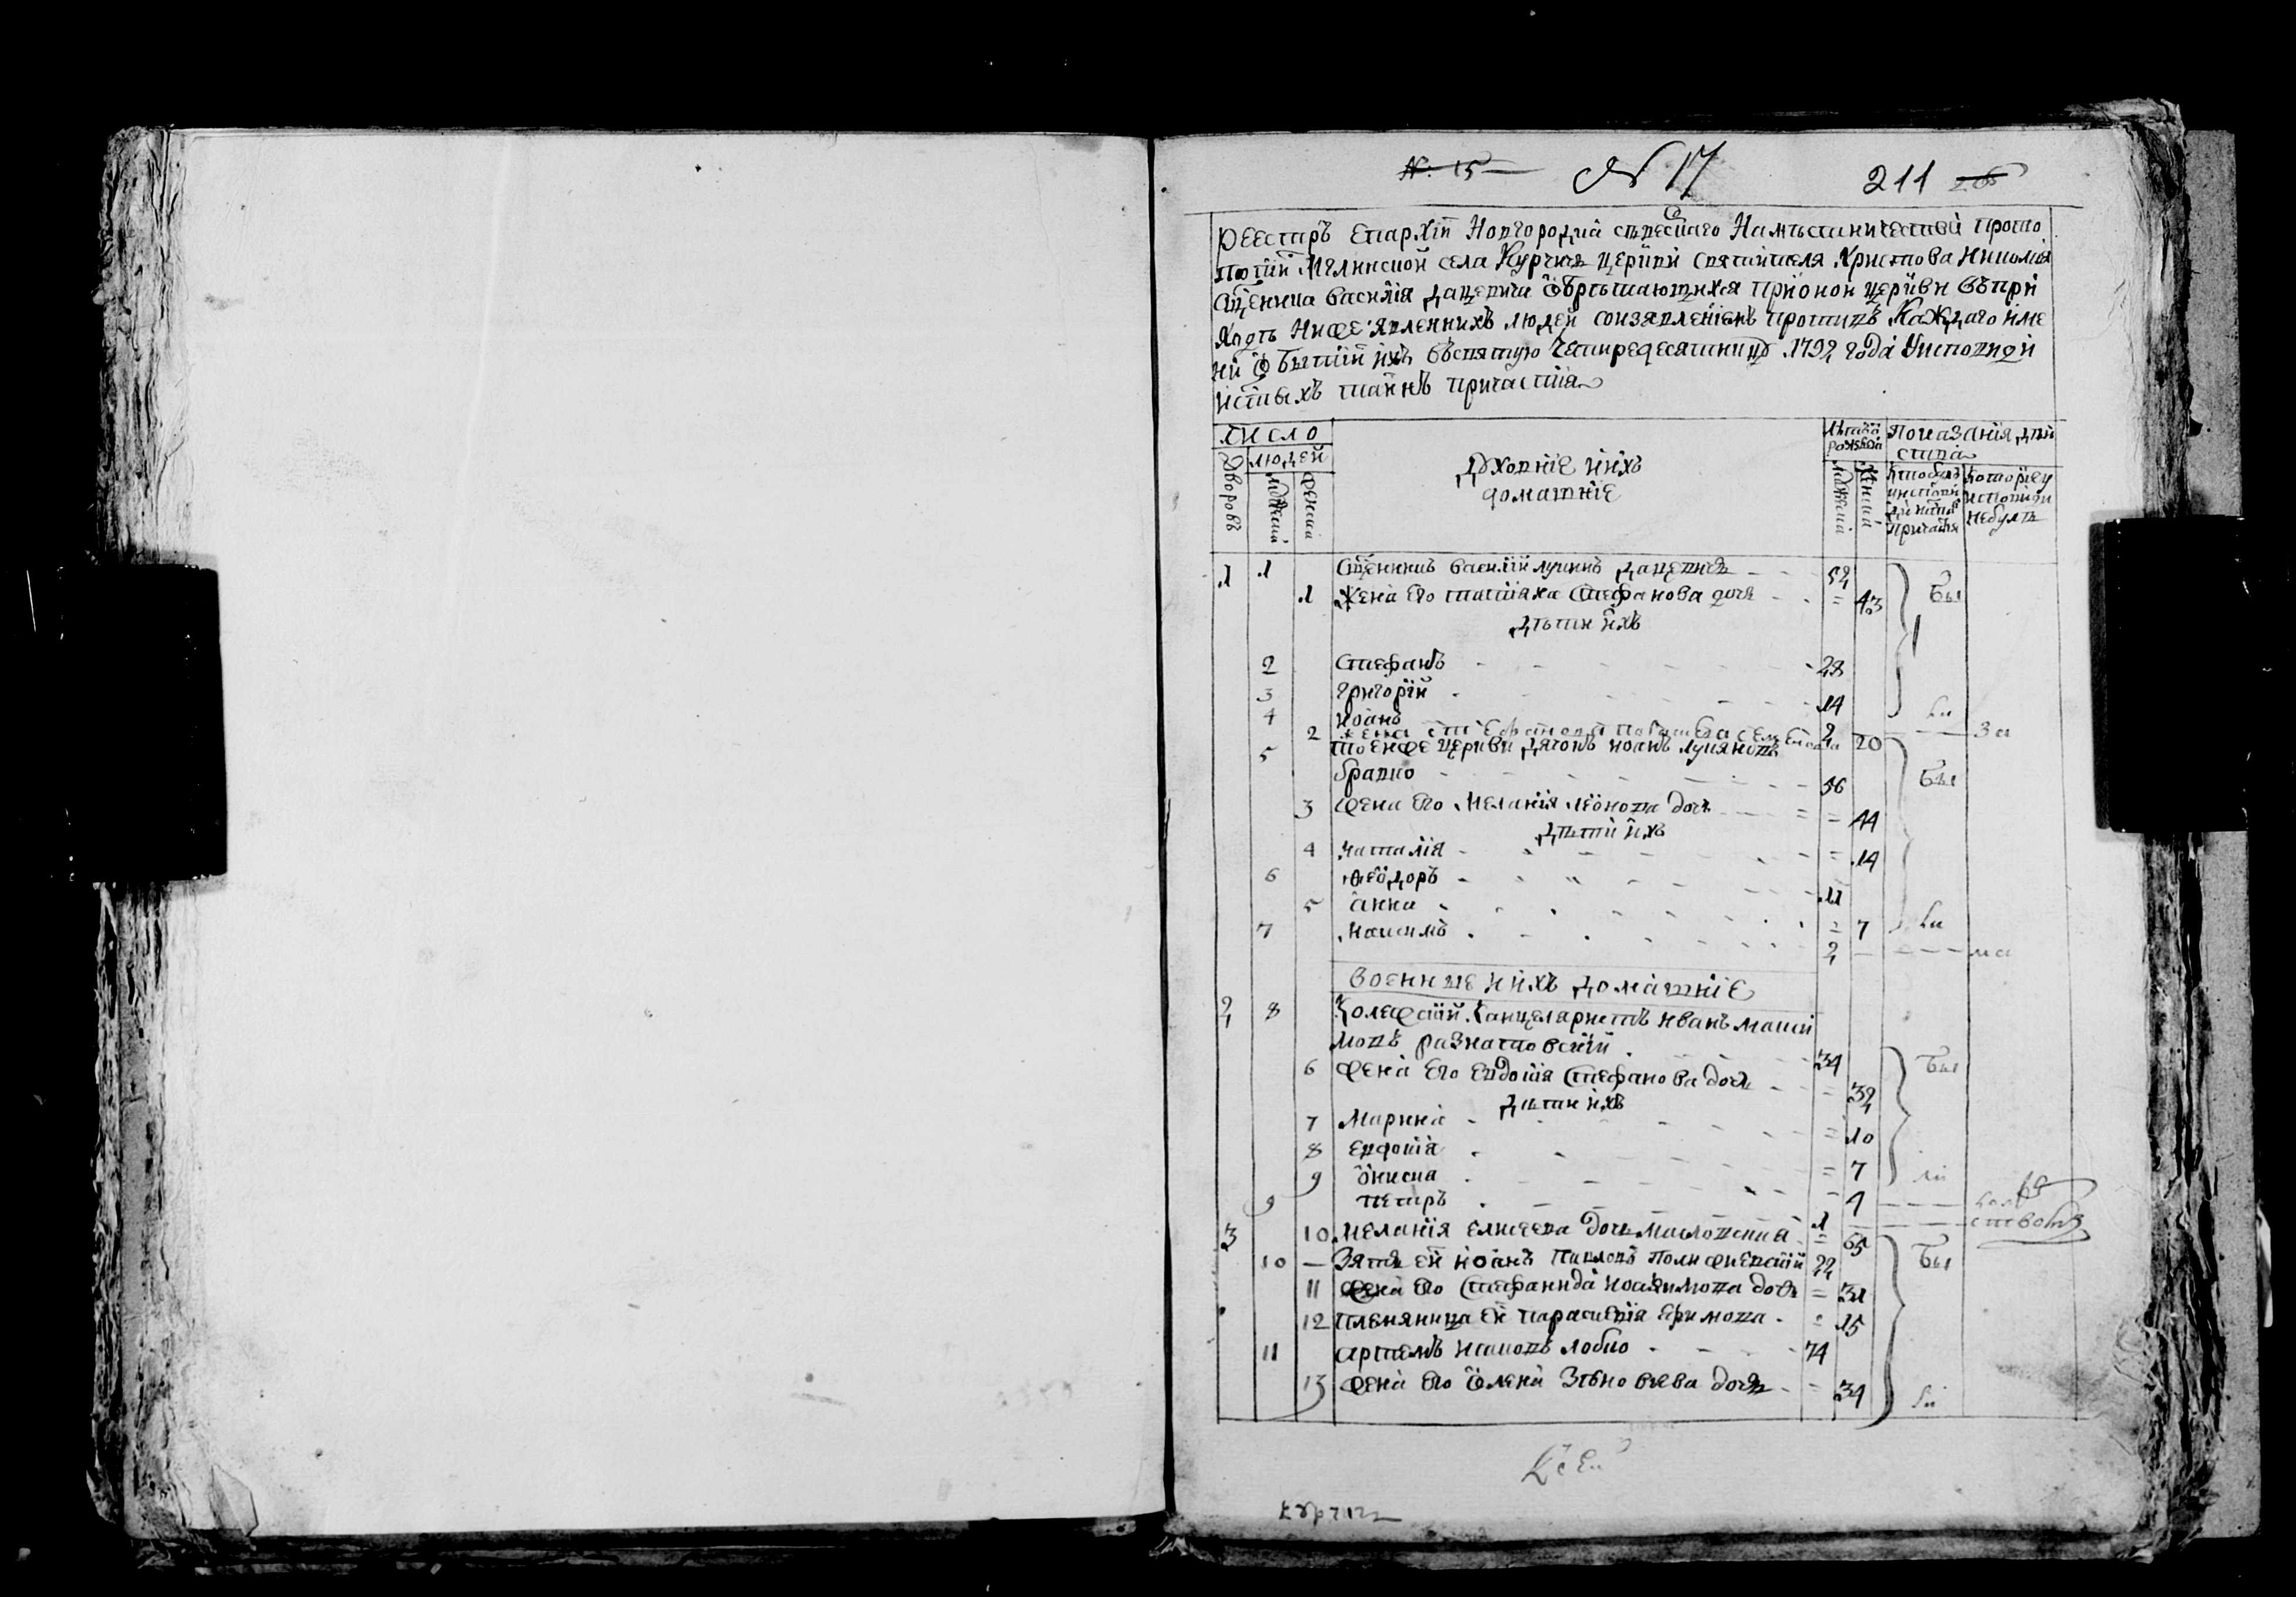 № 15 № 17 211
Реестръ Епархіи Новгородка сѣверскаго Намѣстничества прото
попіи Мглинской села Курчичъ церкви святителя Христова Николая
Сщенника Василія Дацевича обрѣтающихся при оной церкви въ при
ходѣ нижеявленнихъ людей со изявленіемъ противъ каждаго име
ни о бытіи ихъ въ святую четиредесятницу 1792 года у исповѣди
и с͠тыхъ таинъ причастія
Число
Дворовъ
людей
мужеска
женска
Дховніе и ихъ
домашніе
Лѣта ѿ рожденія
мужеска
женска
Показанія дѣйства
Кто былъ у исповѣди и с͠тыхъ причастія
Которіе у исповѣди не были
1 1 Сщенникъ Василій Лукинъ Дацевичъ 52
1 Жена его Татіана Стефанова дочъ 43 Бы
Дѣти ихъ
2 Стефанъ 28
3 Григорій 14
4 Иоанъ 2 ли
2 Жена Стефанова 20 За
5 Тоежъ церкви Дячокъ Иоанъ Лукяновъ
Бравко 56 Бы
3 Жена его Меланія Леонова дочъ 44
Дѣти ихъ
4 Наталія 14
6 Ѳеодоръ 11
5 Анна 7 ли
7 Максимъ 2 ма
Военніе и ихъ домашніе
2 8 Колежскій Канцеляристъ Иванъ Макси
мовъ Разнатовскій 34
6 Жена его Евдокія Стефанова дочъ 32 Бы
Дѣти ихъ
7 Марина 10
8 Евдокія 7
9 Онисия 4 ли
9 Петръ 1
3 10 Меланія Елисеева дочъ Масловская 65
10 Зять ей Иоанъ Павловъ 22 Бы
11 Жена его Стефанида Иоакимова дочъ 31
12 Племяница ей Параскевія Ефимова 15
11 Артемъ Лобко 74
13 Жена его Олена Зѣновіева дочъ 34 ли